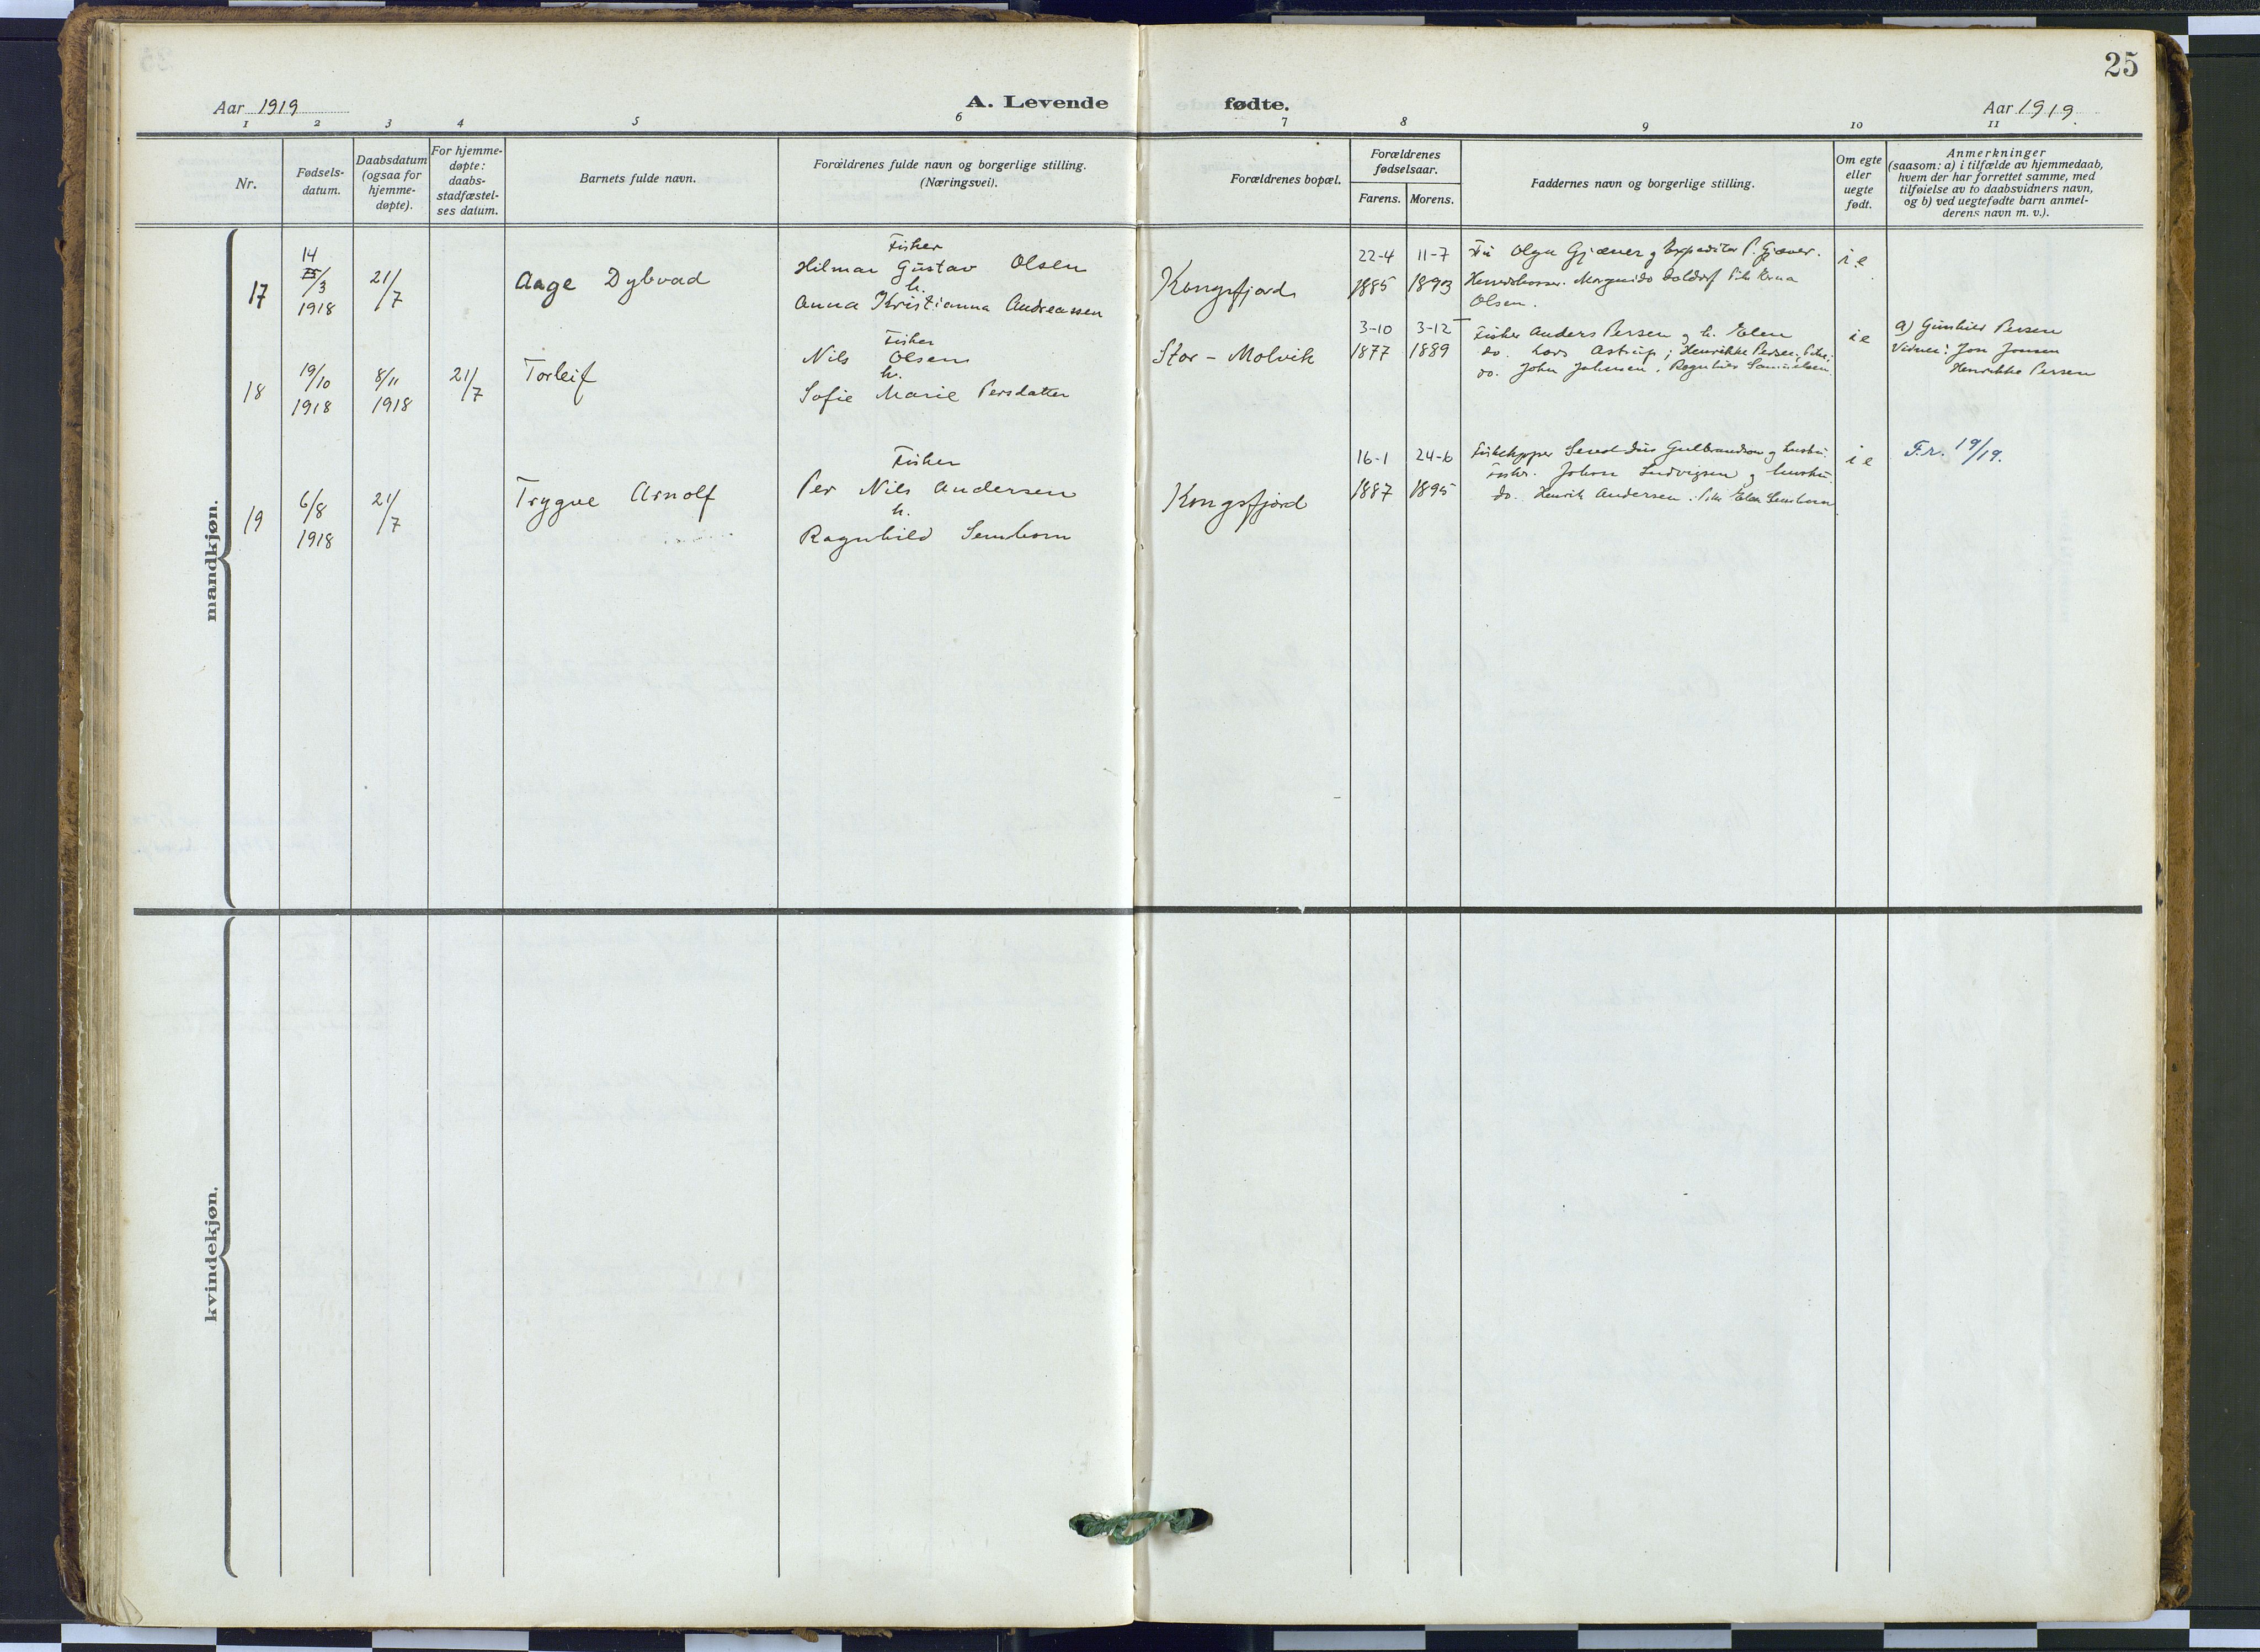 25
Aar 1919
A. Levende fødte.
Aar 1919.
1 2 3 4 5 6 7 8 9 10 11
Nr.
Fødsels-
datum.
Daabsdatum
(ogsaa for
hjemme-
døpte).
For hjemme-
døpte:
daabs-
stadfæstel-
ses datum.
Barnets fulde navn.
Forældrenes fulde navn og borgerlige stilling.
(Næringsvei).
Forældrenes bopæl.
Forældrenes
fødselsaar.
Farens. Morens.
Faddernes navn og borgerlige stilling.
Om egte
eller
uegte
født.
Anmerkninger
(saasom: a) i tilfælde av hjemmedaab,
hvem der har forrettet samme, med
tilføielse av to daabsvidners navn,
og b) ved uegtefødte barn anmel-
derens navn m. v.).
mandkjøn.
17
14
/3
1918
21/
/7
Aage Dybvad
Fisker
Hilmar Gustav Olsen
h.
Anna Kristianna Andreassen
Kongsfjord
22-4 11-7
1885 1893
Olga Gjæver og Expeditør P. Gjæver.
Olsen.
i e
18
19/10
1918
8/11
1918
21/
/7
Torleif
Fisker
Nils Olsen
h.
Sofie Marie Persdatter
Stor-Molvik
3-10 3-12
1877 1889
Fisker Anders Persen og h. Elen
do. Lars Astrup; Henrikke Persen,
do. John Johnsen. Ragnhild Samuelsen.
i e
a) Gunhild Persen
Vidner: Jon Jonsen
Henrikke Persen
19
6/8
1918
21/
/7
Trygve Arnolf
Fisker
Per Nils Andersen
h.
Ragnhild Semborn
Kongsfjord
16-1 24-6
1887 1895
Gulbrandsen og hustru.
Fisker. Johan Ludvigsen og hustru.
do. Henrik Andersen. Elen Semborn.
i e
Fr. 19/19.
kvindekjøn.